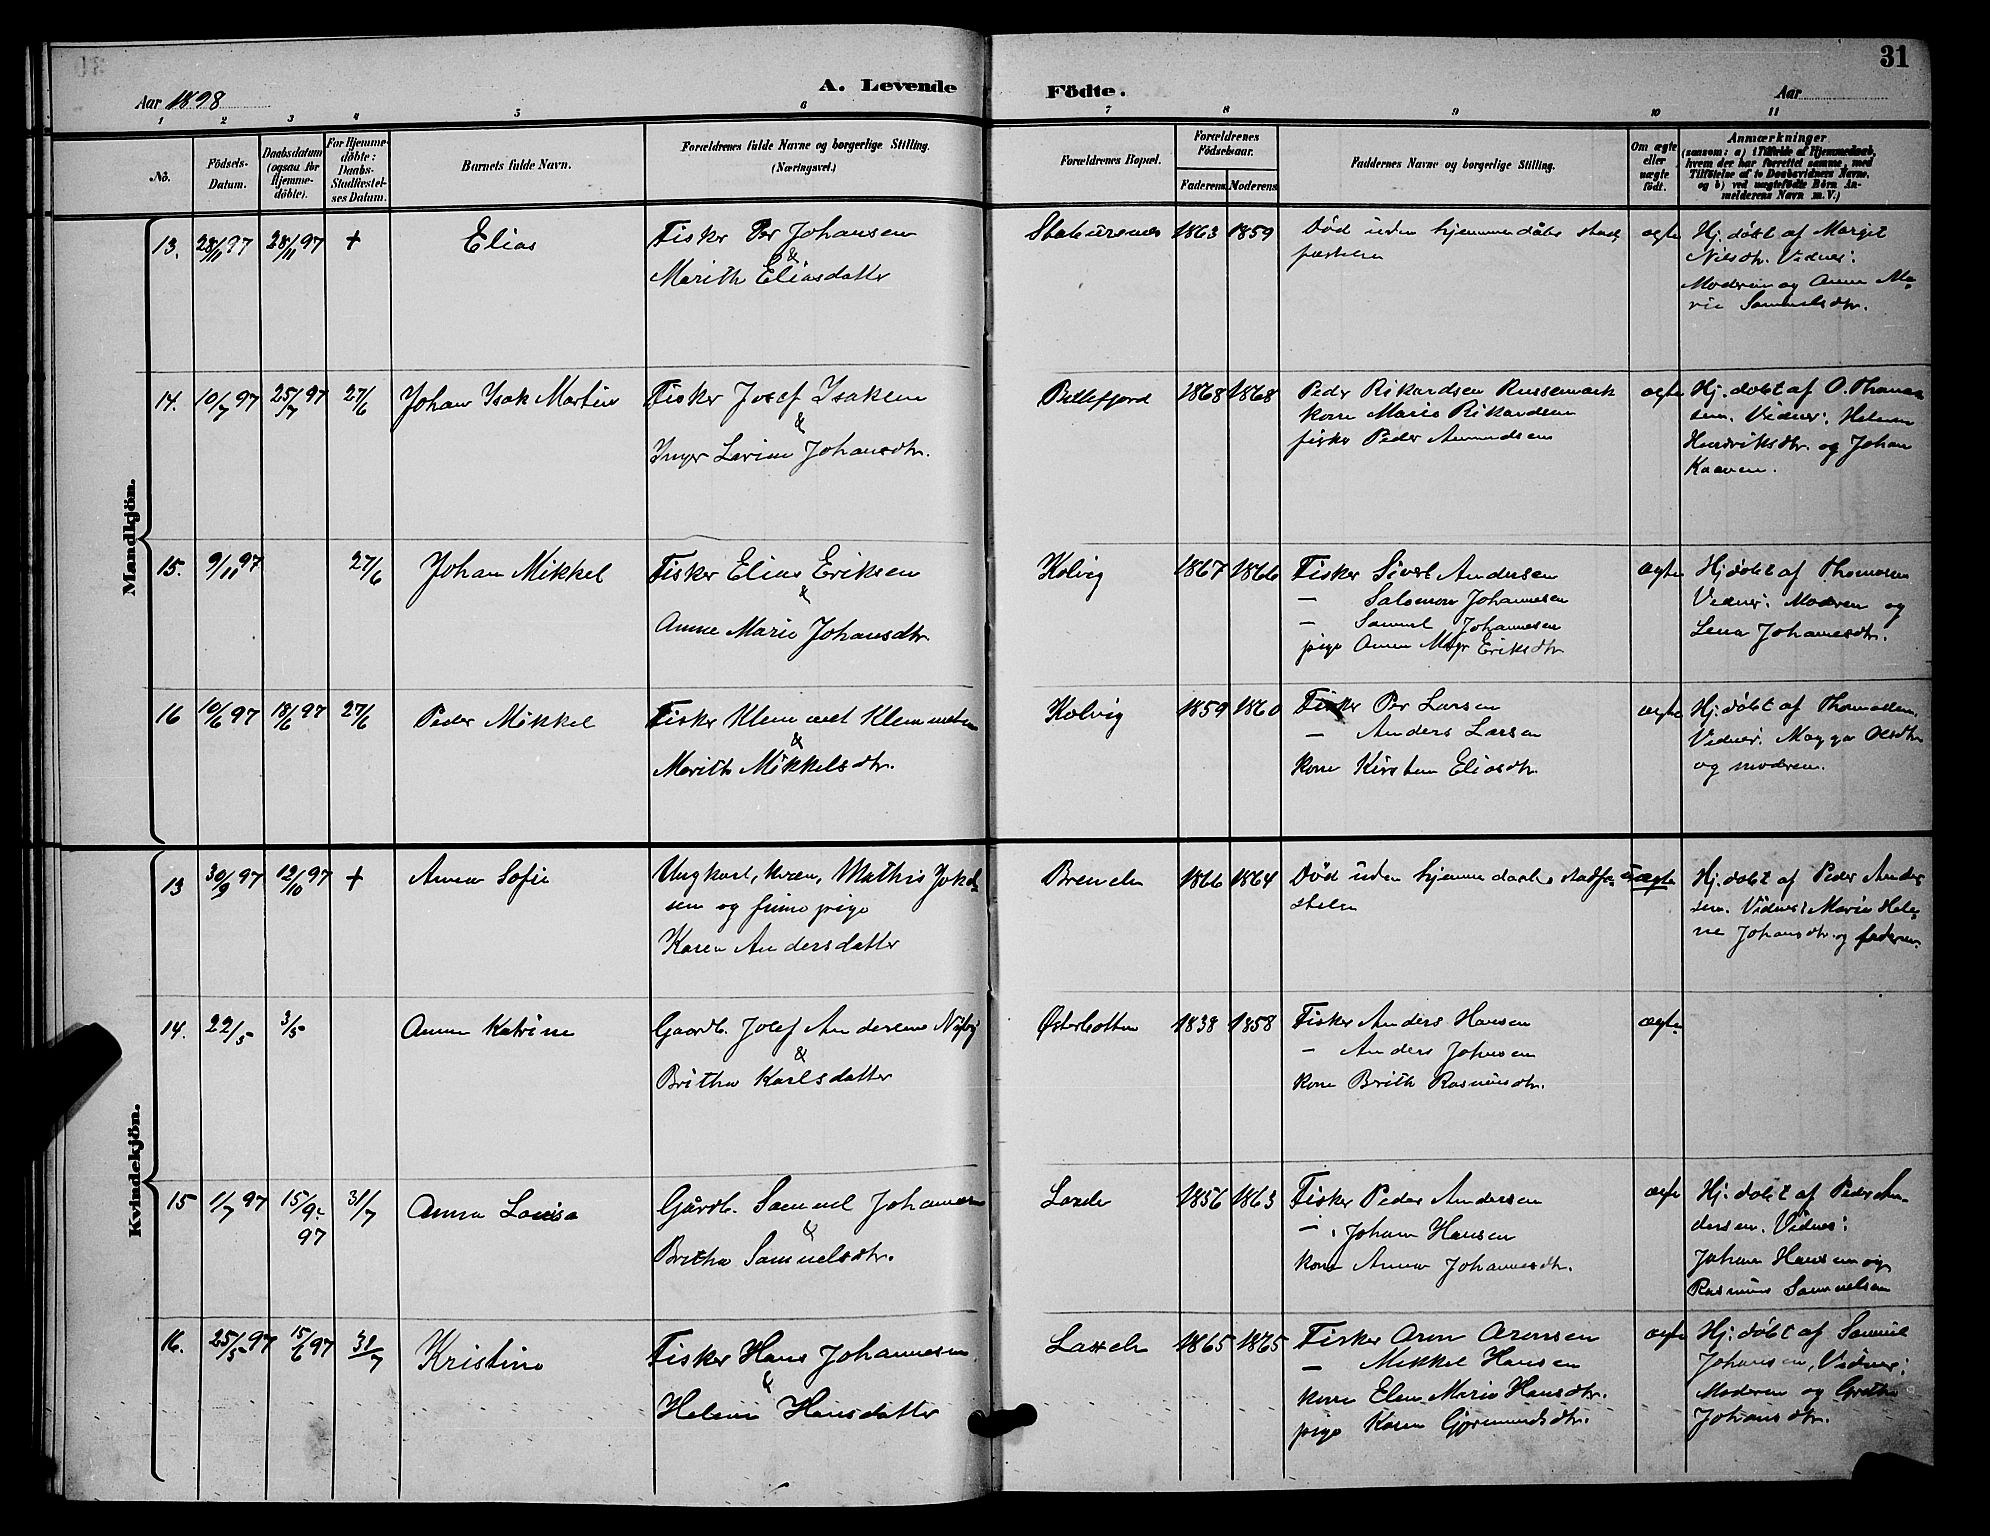 31
A. Levende Födte.
Aar 1898
Aar
1 2 3 4 5 6 7 8 9 10 11
No.
Födsels-Datum.
Daabsdatum (ogsaa for Hjemme-döbte).
For Hjemme-döbte: Daabs-Stadfæstel-ses Datum.
Barnets fulde Navn.
Forældrenes fulde Navne og borgerlige Stilling.
(Næringsvei.)
Forældrenes Bopæl.
Forældrenes Födselsaar.
Faderens. Moderens
Faddernes Navne og borgerlige Stilling.
Om ægte eller uægte födt.
Anmærkninger
(saasom: a) i Tilfælde af Hjemmedaab,
hvem der har forrettet samme, med
Tilföielse af to Daabsvidners Navne,
og b) ved uægtefödte Börn An-
melderens Navn m. V.)
Mandkjön.
13. 28/11 97 28/11 97 + Elias
Fisker Per Johansen
&
Marith Eliasdatter
1863 1859
Död uden hjemmedåbs stad
fæstelse
ægte
Hj. döbt af Margit
Nilsdtr. Vidner:
Moderen og Anna Ma
rie Samuelsdtr.
14. 10/7 97 25/7 97 27/6 Johan Isak Martin
Fisker Josef Isaksen
&
Inger Larine Johansdtr.
Billefjord 1868 1868
Peder Rikardsen Russemark
kone Marie Rikardsen
fisker Peder Amundsen
ægte
Hj. döbt af O. Thomas
sen. Vidner: Helene
Hendriksdtr. og Johan
Kaaven.
15. 9/11 97 27/6 Johan Mikkel
Fisker Elias Eriksen
&
Anne Marie Johansdtr.
Kolvig 1867 1866
Fisker Sivert Andersen
— Salomon Johannesen
— Samuel Johannesen
pige Anne Mgr Eriksdtr
ægte
Hj. döbt af Thomasen
Vidner: Moderen og
Lena Johanesdtr.
16 10/6 97 18/6 97 27/6 Peder Mikkel
Fisker Klemmet Klemmetsen
&
Marith Mikkelsdtr.
Kolvig 1859 1860
Fisker Per Larsen
— Anders Larsen
kone Kirsten Eliasdtr.
ægte
Hj. döbt af Thomassen.
Vidner: Magga Olsdtr
og moderen.
Kvindekjön.
13 30/9 97 12/10 97 + Anna Sofie
Ungkarl, kvæn, Mathis Jokel
sen og finne pige
Karen Andersdatter
Brenelv 1866 1864
Död uden hjemme daabs stadfæ
stelse
uægte
Hj. döbt af Peder Ander
sen. Vidner: Marie Hele
ne Johansdtr. og faderen.
14. 22/5 3/5 Anne Katrine
Gaardb. Josef Andersens
&
Britha Karlsdatter
Østerbotten 1838 1858
Fisker Anders Hansen
— Anders Johnsen
kone Brith Rasmusdtr.
ægte
15 1/7 97 15/9 97 31/7 Anna Lovisa
Gårdb. Samuel Johannesen
&
Britha Samuelsdtr.
Laxelv 1856 1863
Fisker Peder Andersen
— Johan Hansen
kone Anna Johannesdtr.
ægte
Hj. döbt af Peder An-
dersen. Vidner:
Johan Hansen og
Rasmus Samuelsen
16. 25/5 97 15/6 97 31/7 Kristine
Fisker Hans Johannesen
&
Helene Hansdatter
Laxelv 1865 1865
Fisker Aron Aronsen
— Mikkel Hansen
kone Elen Marie Hansdtr.
pige Karen Gjermundsdtr.
ægte
Hj. döbt af Samuel
Johansen, Vidner:
Moderen og Grethe
Johansdtr.